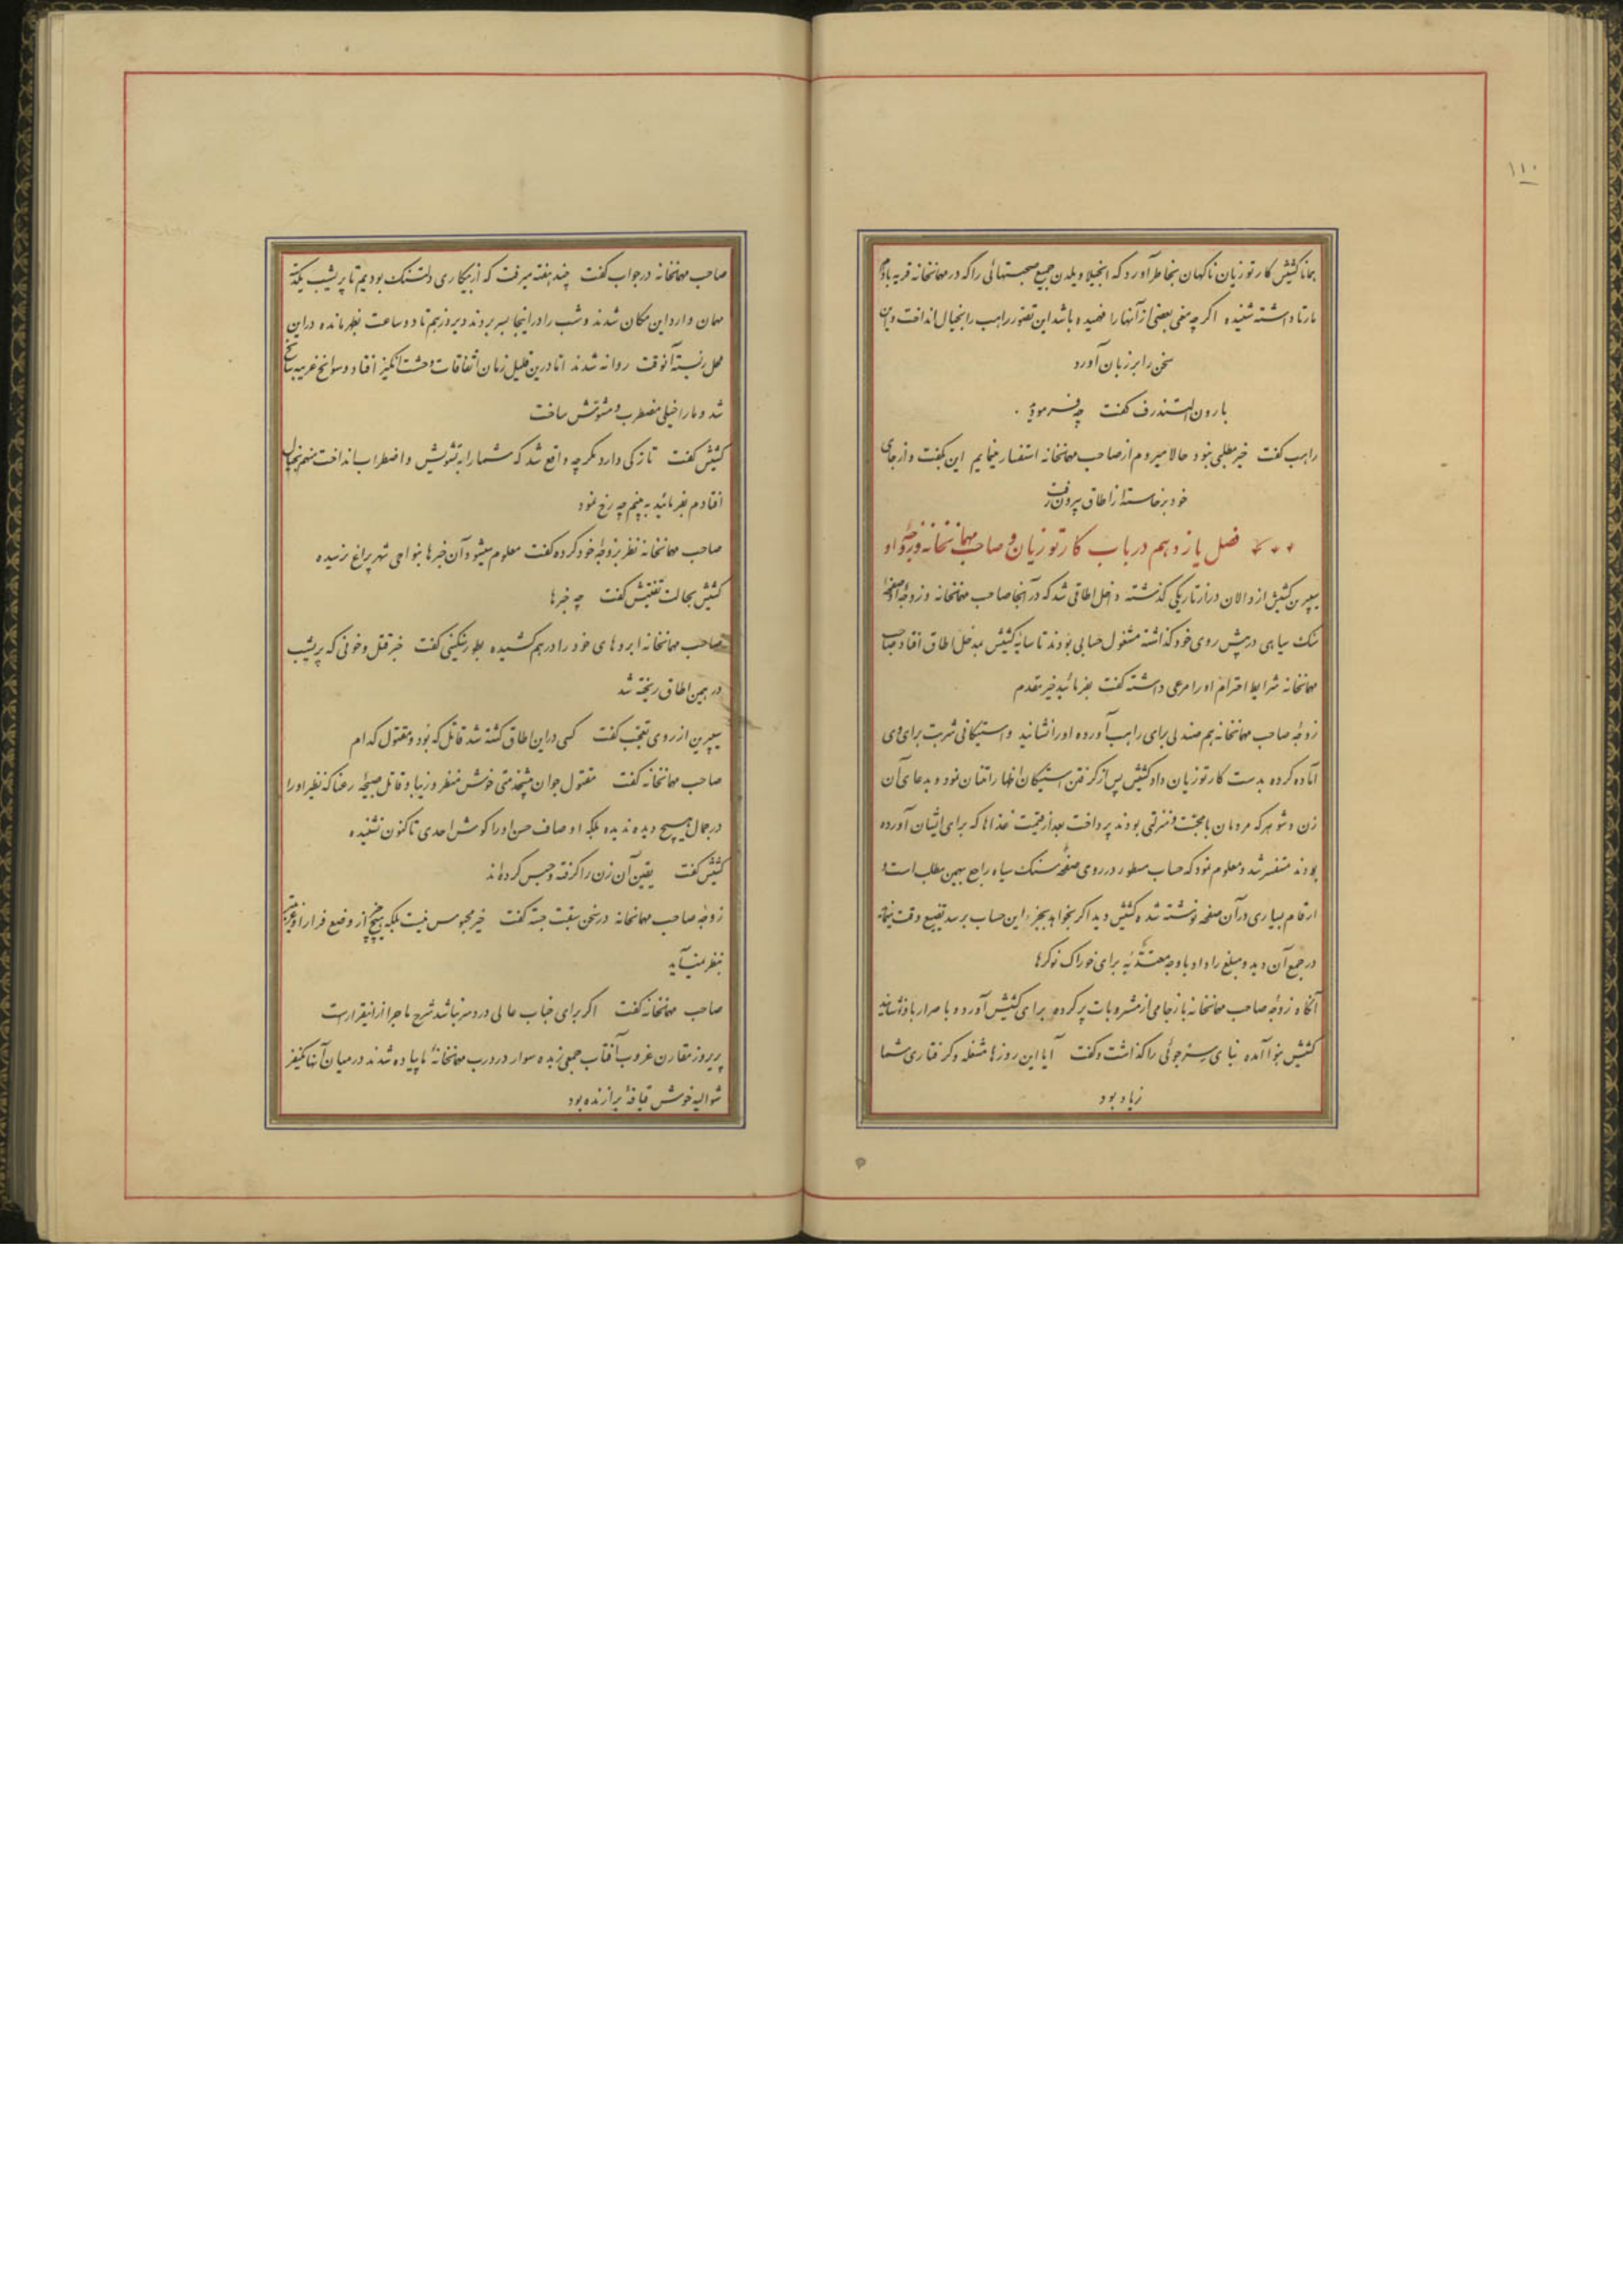 ۱۱۰
همانا کشیش کارتوزیان ناکهان بخاطر آورد که انجیلا ویلدن جمیع صحبتهائی را که در مهمانخانه قریه با
مارتا داشته شنیده اکر چه معنی بعضی از آنها را فهمیده باشد این تصور راهب را بخیال انداخت و این
سخن را بر زبان آورد
بارون التندرف کفت چه فرمودید
راهب کفت خیر مطلبی نبود حالا میروم از صاحب مهمانخانه استفسار مینمایم این بکفت و از جای
خود برخاسته از اطاق بیرون رفت
فصل یازدهم در باب کارتوزیان و صاحب مهمانخانه و زوجهٔ او
سپرین کشیش از دالان دراز تاریکی کذشته داخل اطاقی شد که در آنجا صاحب مهمانخانه و زوجهٔ او صفحهٔ
سنک سیاهی در پیش روی خود کذاشته مشغول حسابی بودند تا سایه کشیش بمدخل اطاق افتاد صاحب
مهمانخانه شرایط احترام او را مرعی داشته کفت بفرمائید خیر مقدم
زوجهٔ صاحب مهمانخانه هم صندلی برای راهب آورده او را نشانید و استیکانی شربت برای وی
آماده کرده بدست کارتوزیان داد کشیش پس از کرفتن استیکان اظهار امتنان نمود و بدعای آن
زن و شوهر که مردمان با محبت بودند پرداخت بعد از قیمت غذاها که برای ایشان آورده
بودند مستفسر شد و معلوم نمود که حساب مسطور در روی صفحهٔ سنک سیاه راجع بهمین مطلب است و
ارقام بسیاری در آن صفحه نوشته شده کشیش دید اکر بخواهد بجزء این حساب برسد تضییع وقت مینماید
در جمع آن دید و مبلغ را داد با وجه معتدٌبه برای خوراک نوکرها
آنکاه زوجهٔ صاحب مهمانخانه باز جامی از مشروبات پر کرده برای کشیش آورد و با صرار باو نوشانید
کشیش بنوا آمده بنای پرسش جوئی را کذاشت و کفت آیا این روزها مشغله و کرفتاری شما
زیاد بود
صاحب مهمانخانه در جواب کفت چند هفته میرفت که از بیکاری دلتنک بودیم تا پریشب یکدسته
مهمان وارد این مکان شدند و شب را در اینجا بسر بردند و دیروز هم تا دو ساعت بظهر مانده در این
محل زیسته آنوقت روانه شدند اما درین قلیل زمان اتفاقات وحشت انکیز افتاد و سوانح غریبه سانح
شد و ما را خیلی مضطرب و مشوش ساخت
کشیش کفت تازکی دارد مکر چه واقع شد که شما را به تشویش و اضطراب انداخت منهم بخیال
افتادم بفرمائید به بینم چه رخ نمود
صاحب مهمانخانه نظر بزوجهٔ خود کرده کفت معلوم میشود آن خبرها بنواحی شهر پراغ نرسیده
کشیش بحالت تفتیش کفت چه خبرها
صاحب مهمانخانه ابروهای خود را در هم کشیده بطور سنکینی کفت خبر قتل و خونی که پریشب
در همین اطاق ریخته شد
سپرین از روی تعجب کفت کسی در این اطاق کشته شد قاتل که بود و مقتول کدام
صاحب مهمانخانه کفت مقتول جوان پیشخدمتی خوش منظر و زیبا و قاتل صبیحهٔ رعنا که نظیر او را
در جمال هیچ دیده ندیده بلکه اوصاف حسن او را کوش احدی تا کنون نشنیده
کشیش کفت یقین آن زن را کرفته و حبس کرده‌اند
زوجهٔ صاحب مهمانخانه در سخن سبقت جسته کفت خیر محبوس نیست بلکه هیچ چیز از وضع فرار او غریب‌تر
بنظر نمیآید
صاحب مهمانخانه کفت اکر برای جناب عالی درد سر نباشد شرح ماجرا از اینقرار است
پریروز مقارن غروب آفتاب جمعی زبده سوار در درب مهمانخانهٔ ما پیاده شدند در میان آنها یکنفر
شوالیه خوش قیافهٔ برازنده بود